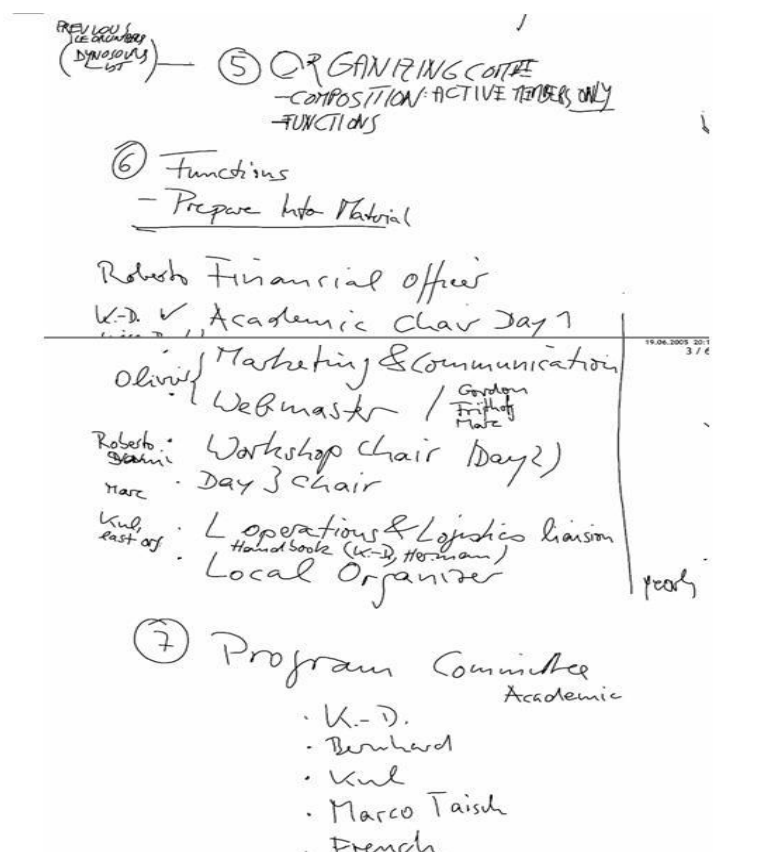 PREVIOUS
(DYNOSOURS
LIST)
⑤ ORGANIZING COMTEE
- COMPOSITION: ACTIVE MEMBERS ONLY
- FUNCTIONS
⑥ Functions
- Prepare Info Material
Roberto Financial Officer
K.-D. ✓ Academic Chair Day 1
19.06.2005 20:1
3 / 6
Olivier { Marketing & Communication
Webmaster / Gordon
Frithof
Marc
Roberto · Workshop Chair (Day 2)
Marc · Day 3 Chair
Kul,
east org · L operations & Logistics liaison
Handbook (K.-D, Hermann)
· Local Organizer
yearly
⑦ Program Committee
Academic
· K.-D.
· Bernhard
· Kul
· Marco Taisch
· French